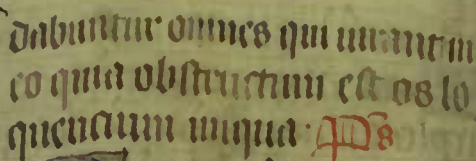 dabuntur omnes qui iurant in
eo quia obstructum est os lo
quencium iniqua. Ps